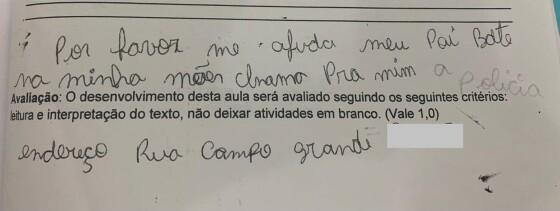 Por favor me ajuda meu Pai Bate
na minha mães chnamo Pra mim a policia
Avaliação: O desenvolvimento desta aula será avaliado seguindo os seguintes critérios:
leitura e interpretação do texto, não deixar atividades em branco. (Vale 1,0)
endereço Rua Campo grande